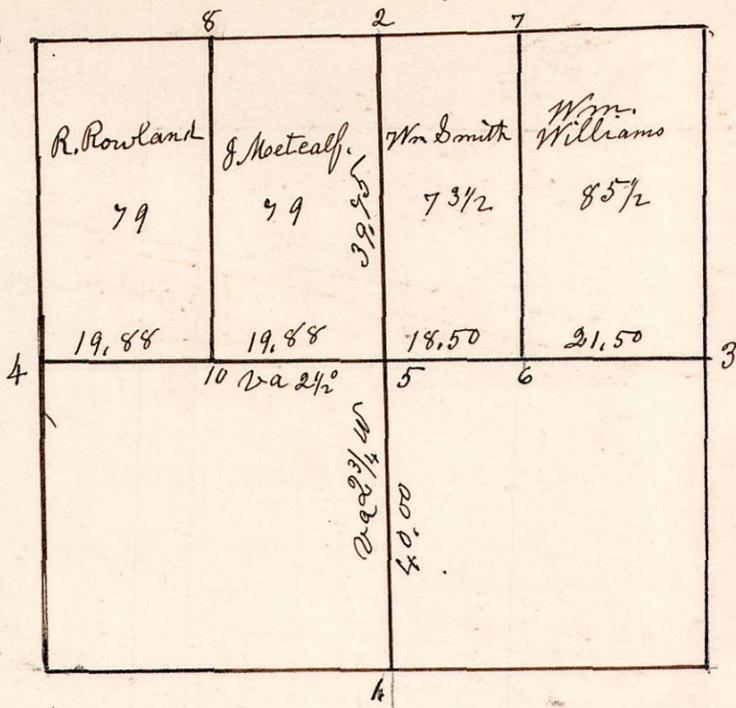 8 2 7
R. Rowland
79
19,88
J. Metcalf.
79
19,88
Wm Smith
73½
18.50
Wm.
Williams
85½
21,50
4
10 Va 2½°
5
6
3
40.00